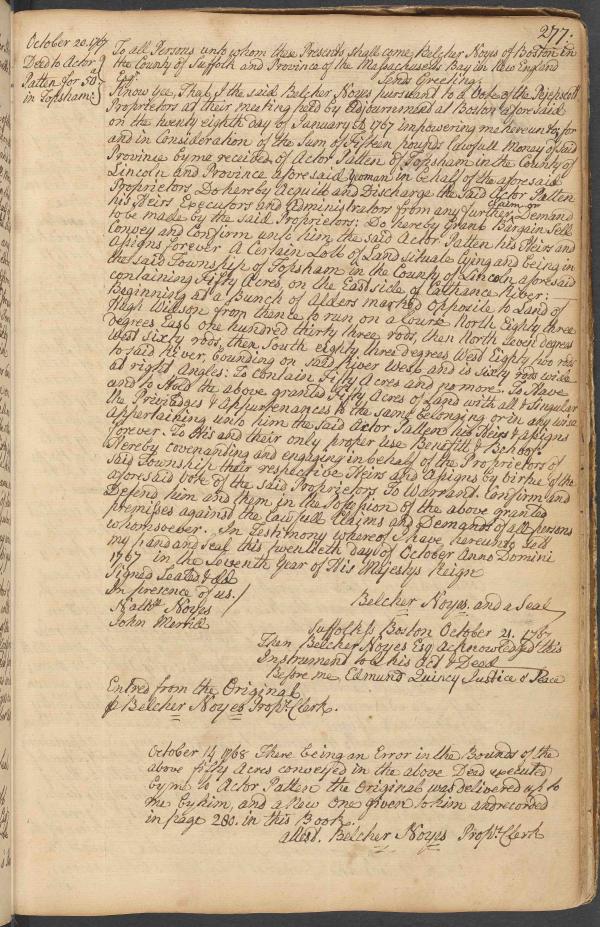 277.
October 20. 1767
Deed to Actor
Patten for 50 a
in Topsham.
To all Persons unto whom these Presents shall come Belcher Noyes of Boston in
the County of Suffolk and Province of the Massachusetts Bay in New England
Esqr. Sends Greeting.
Know yee, That I the said Belcher Noyes pursuant to a Vote of the Pejepscott
Proprietors at their meeting held by Adjournment at Boston aforesaid
on the twenty eighth day of January 1767 impowering me hereunto; for
and in Consideration of the Sum of Fifteen pounds Lawfull Money of said
Province by me received of Actor Patten of Topsham in the County of
Lincoln and Province aforesaid yeoman in behalf of the aforesaid
Proprietors Do hereby Acquit and Discharge the said Actor Patten
his Heirs Executors and Administrators from any further Claim or Demand
to be made by the said Proprietors: Do hereby Grant Bargain Sell
Convey and Confirm unto him the said Actor Patten his Heirs and
Assigns forever A Certain Lott of Land Situate Lying and being in
the said Township of Topsham in the County of Lincoln aforesaid
containing Fifty Acres, on the East side of Cathance River:
Beginning at a Bunch of Alders marked opposite to Land of
Hugh Willson from thance to run on a Course North Eighty three
degrees East one hundred thirty three rods, then North Seven degrees
West Sixty rods, then South eighty three degrees West Eighty two rods
to said River, bounding on said River West and is Sixty rods wide
at right Angles: To Contain Fifty Acres and no more To Have
and to Hold the above granted Fifty Acres of Land with all & Singular
the Priviledges & Appurtenances to the same belonging or in any wise
appertaining unto him the said Actor Patten his Heirs & Assigns
forever. To His and their only proper Use Benefitt & Behoof.
Hereby covenanting and engaging in behalf of the Proprietors of
said Township their respective Heirs and Assigns by virtue of the
aforesaid Vote of the said Proprietors To Warrant Confirm and
Defend him and them in the Possession of the above granted
premisses against the Lawfull Claims and Demands of all persons
whomsoever. In Testimony whereof I have hereunto Sett
my hand and Seal this twentieth day of October Anno Domini
1767 in the Seventh Year of His Majestys Reign
Signed Sealed & dd
In presence of us.
Nathll Noyes
John Merrill
Belcher Noyes. and a Seal
Suffolk ss Boston October 21. 1767
Then Belcher Noyes Esq Acknowledged this
Instrument to be his Act & Deed
Before me Edmund Quincy Justice of Peace
Entred from the Original
p Belcher Noyes Propr. Clerk.
October 14 1768 There being an Error in the Bounds of the
above fifty Acres conveyed in the above Deed executed
by me to Actor Patten the Original was delivered up to
me by him, and a New one given to him and recorded
in page 280. in this Book.
attest. Belcher Noyes Propr. Clerk